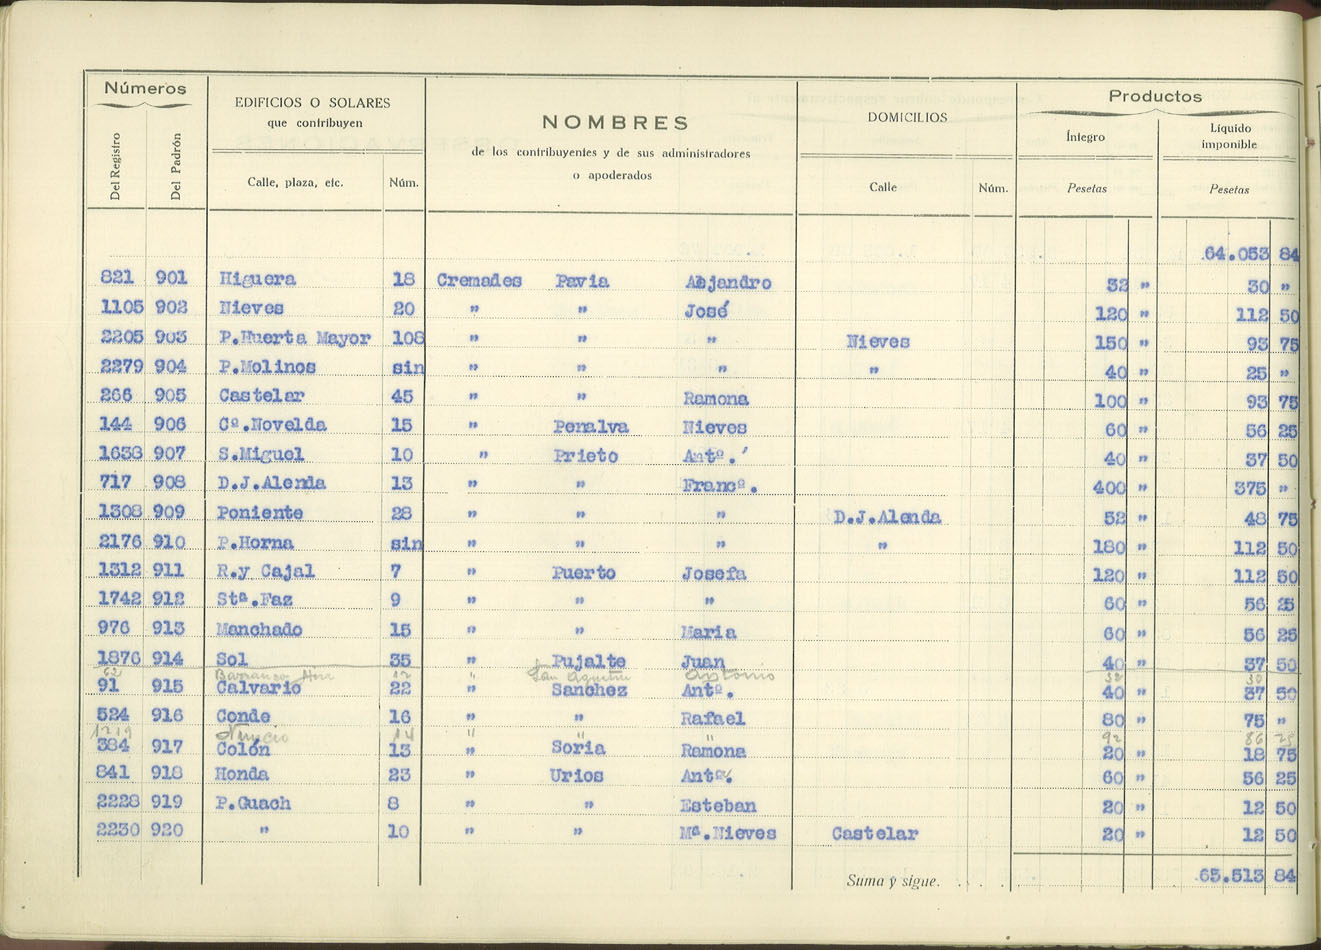 Números
EDIFICIOS O SOLARES
que contribuyen
NOMBRES
de los contribuyentes y de sus administradores
o apoderados
DOMICILIOS
Productos
Íntegro
Líquido
imponible
Del Registro
Del Padrón
Calle, plaza, etc.
Núm.
Calle
Núm.
Pesetas
Pesetas
64.053 84
821 901 Higuera 18 Cremades Pavia Aljandro 32 " 30 "
1105 902 Nieves 20 " " José 120 " 112 50
2205 903 P.Huerta Mayor 108 " " " Nieves 150 " 93 75
2279 904 P.Molinos sin " " " " 40 " 25 "
266 905 Castelar 45 " " Ramona 100 " 93 75
144 906 Cº.Novelda 15 " Penalva Nieves 60 " 56 25
1638 907 S.Miguel 10 " Prieto Antº. 40 " 37 50
717 908 D.J.Alenda 13 " " Francº. 400 " 375 "
1308 909 Poniente 28 " " " D.J.Alenda 52 " 48 75
2176 910 P.Horna sin " " " " 180 " 112 50
1312 911 R.y Cajal 7 " Puerto Josefa 120 " 112 50
1742 912 Stª.Faz 9 " " " 60 " 56 25
976 913 Manchado 15 " " Maria 60 " 56 25
1876 914 Sol 35 " Pujalte Juan 40 " 37 50
62 Barranco 12 " San Agustin Antonio 32 30
91 915 Calvario 22 " Sanchez Antº. 40 " 37 50
524 916 Conde 16 " " Rafael 80 " 75 "
1219 Nuncio 14 " " " 92 86 25
384 917 Colón 13 " Soria Ramona 20 " 18 75
841 918 Honda 23 " Urios Antª. 60 " 56 25
2228 919 P.Guach 8 " " Esteban 20 " 12 50
2230 920 " 10 " " Mª.Nieves Castelar 20 " 12 50
Suma y sigue. . . . . 65.513 84